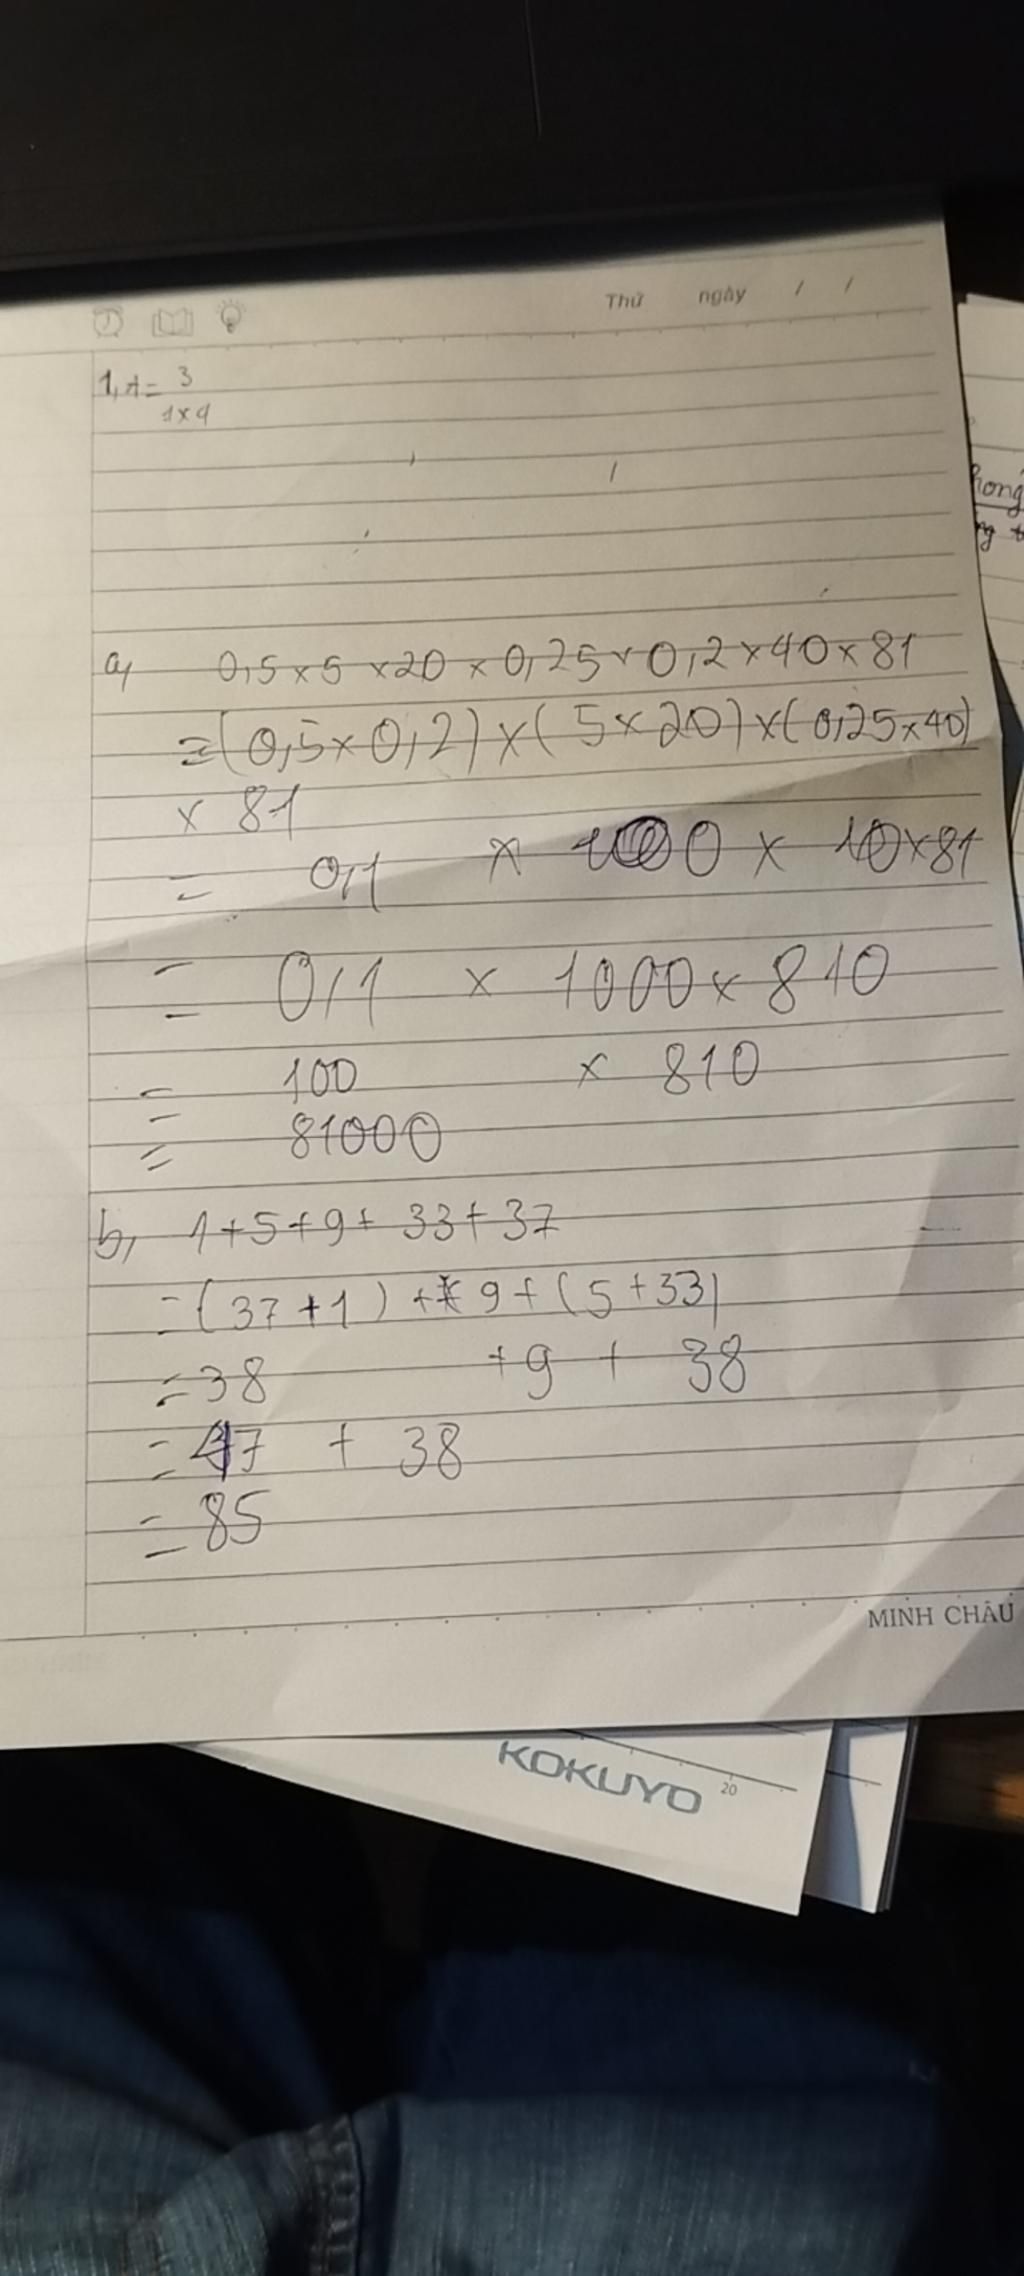 Thứ ngày / /
1, A = 3
1×4
a, 0,5 × 5 × 20 × 0,25 × 0,2 × 40 × 81
= (0,5 × 0,2) × (5 × 20) × (0,25 × 40)
× 81
= 0,1 × × 10 × 81
= 0,1 × 1000 × 810
= 100 × 810
= 81000
b, 1 + 5 + 9 + 33 + 37
= (37 + 1) + 9 + (5 + 33)
= 38 + 9 + 38
= 47 + 38
= 85
MINH CHÂU
KOKUYO
20